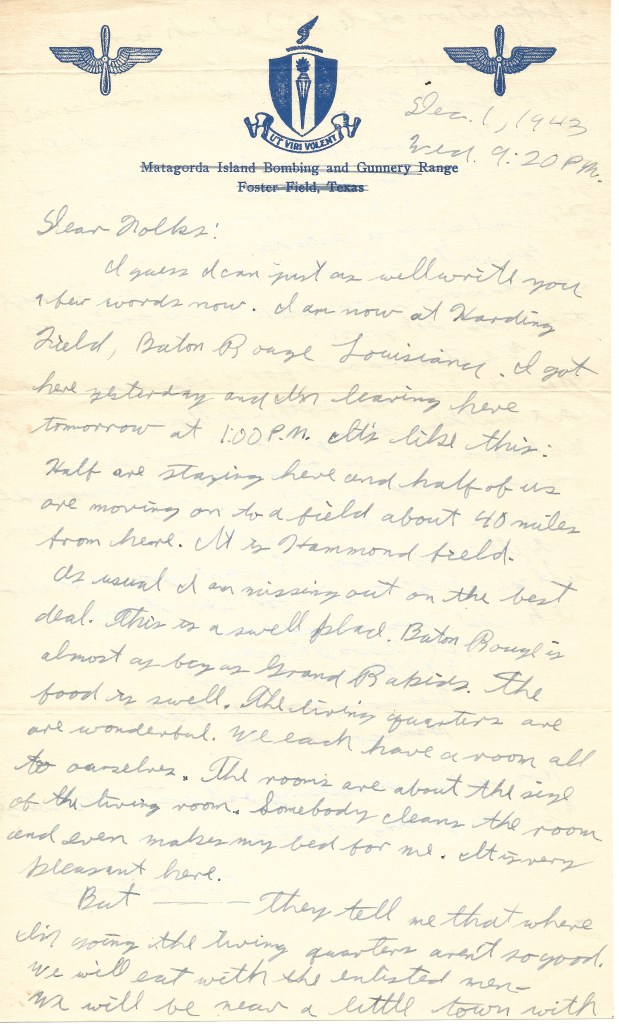 UT VIRI VOLENT
Dec. 1, 1943
Wed. 9:20 P.M.
Matagorda Island Bombing and Gunnery Range
Foster Field, Texas
Dear Folks:
I guess I can just as well write you
a few words now. I am now at Harding
Field, Baton Rouge Louisiana. I got
here yesterday and I'm leaving here
tomorrow at 1:00 P.M. It's like this:
Half are staying here and half of us
are moving on to a field about 40 miles
from here. It is Hammond field.
As usual I am missing out on the best
deal. This is a swell place. Baton Rouge is
almost as big as Grand Rapids. The
food is swell. The living quarters are
are wonderful. We each have a room all
to ourselves. The rooms are about the size
of the living room. Somebody cleans the room
and even makes my bed for me. It is very
pleasant here.
But ——— They tell me that where
I'm going the living quarters aren't so good.
We will eat with the enlisted men—
We will be near a little town with